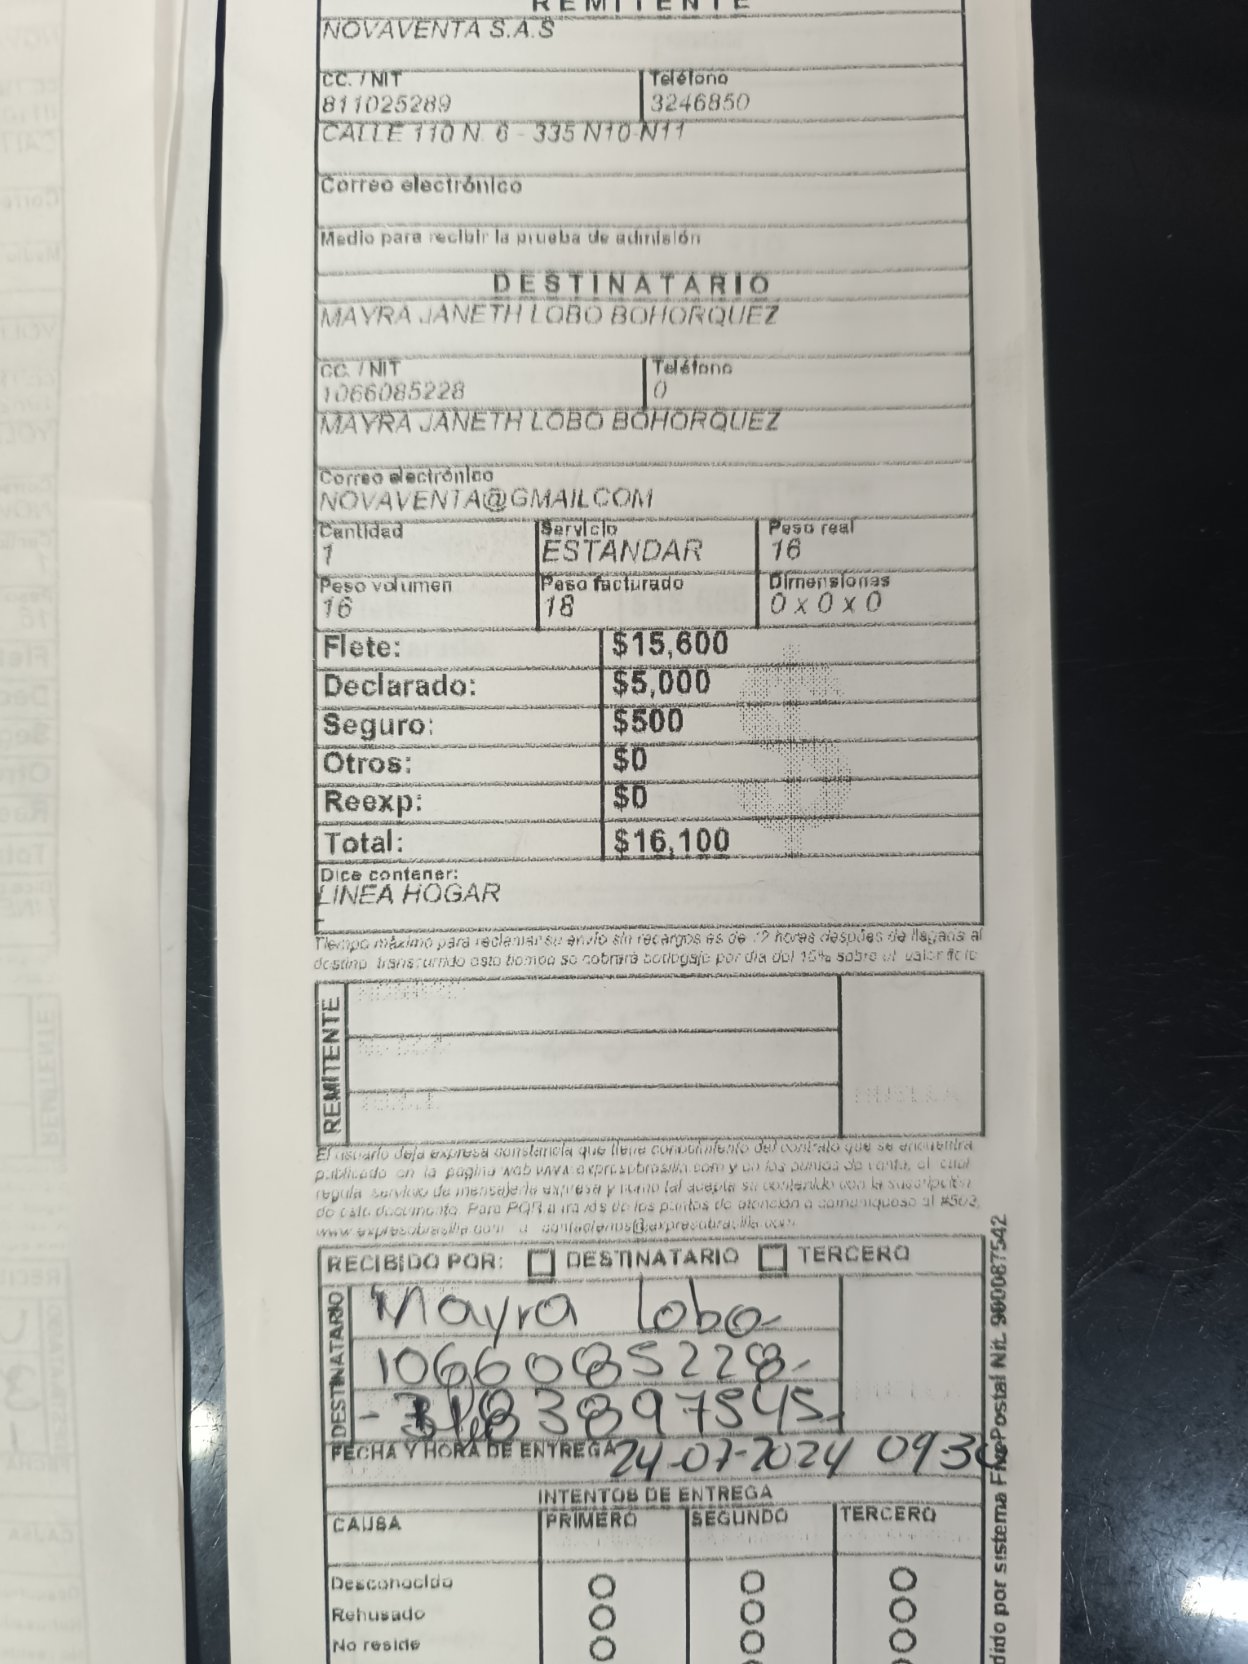 REMITENTE
NOVAVENTA S.A.S
CC. / NIT Teléfono
811025289 3246850
CALLE 110 N. 6 - 335 N10-N11
Correo electrónico
Medio para recibir la prueba de admisión
DESTINATARIO
MAYRA JANETH LOBO BOHORQUEZ
CC. / NIT Teléfono
1066085228 0
MAYRA JANETH LOBO BOHORQUEZ
Correo electrónico
NOVAVENTA@GMAIL.COM
Cantidad Servicio Peso real
1 ESTANDAR 16
Peso volumen Peso facturado Dimensiones
16 18 0 x 0 x 0
Flete: $15,600
Declarado: $5,000
Seguro: $500
Otros: $0
Reexp: $0
Total: $16,100
Dice contener:
LINEA HOGAR
Tiempo máximo para reclamar su envío sin recargos es de 72 horas después de llegada al
destino, transcurrido este tiempo se cobrará bodegaje por día del 10% sobre el valor flete
REMITENTE
El usuario deja expresa constancia que tiene conocimiento del contrato que se encuentra
publicado en la página web www.expresobrasilia.com y en los puntos de venta, el cual
regula servicio de mensajería expresa y como tal acepta su contenido con la suscripción
de este documento. Para PQR a través de los puntos de atención o comuníquese al #502,
www.expresobrasilia.com o contactenos@expresobrasilia.com
RECIBIDO POR: DESTINATARIO TERCERO
DESTINATARIO
Mayra Lobo
1066085228
3183897545
FECHA Y HORA DE ENTREGA 24-07-2024 09:30
INTENTOS DE ENTREGA
CAUSA PRIMERO SEGUNDO TERCERO
Desconocido
Rehusado
No reside
dido por sistema FivePostal Nit. 900087542